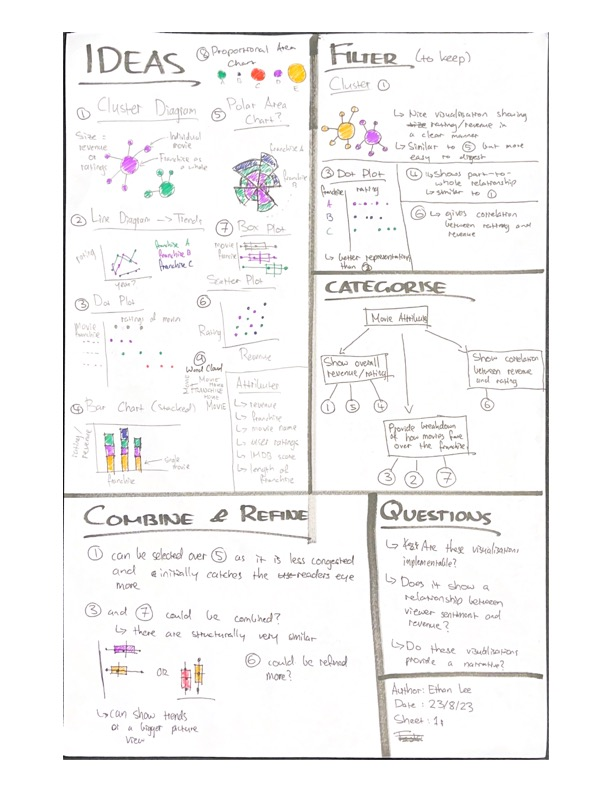 IDEAS
⑧ Proportional Area
Chart
A B C D E
① Cluster Diagram
Size =
revenue
or ratings
Individual
movie
Franchise as
a whole
⑤ Polar Area
Chart?
franchise A
franchise
B
② Line Diagram → Trends
rating
year?
franchise A
franchise B
franchise C
⑦ Box Plot
movie
③ Dot Plot
ratings of movies
movie
franchise
Scatter Plot
⑥
Rating
Revenue
⑨
Word Cloud
MOVIE
④ Bar Chart (Stacked)
rating/
revenue
franchise
movie
Attributes
↳ revenue
↳ franchise
↳ movie name
↳ user ratings
↳ IMDB score
↳ length of
franchise
FILTER (to keep)
Cluster ①
↳ Nice visualisation showing
rating/revenue in
a clear manner
↳ Similar to ⑤ but more
easy to digest
③ Dot Plot
franchise rating
A
B
C
↳ better representation
than
④ ↳ shows part-to-
whole relationship
↳ similar to ①
⑥ ↳ gives correlation
between rating and
revenue
CATEGORISE
Movie Attributes
Show overall
revenue/ratings
① ⑤ ④
Show correlation
between revenue
and rating
⑥
Provide breakdown
of how movies fare
over the franchise
③ ② ⑦
COMBINE & REFINE
① can be selected over ⑤ as it is less congested
and initially catches the readers eye
more
③ and ⑦ could be combined?
↳ there are structurally very similar
OR
⑥ could be refined
more?
↳ can show trends
or a bigger picture
view
QUESTIONS
↳ Are these visualisations
implementable?
↳ Does it show a
relationship between
viewer sentiment and
revenue?
↳ Do these visualisations
provide a narrative?
Author: Ethan Lee
Date: 23/8/23
Sheet: 1